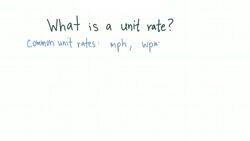 What is a unit rate?
Common unit rates: mph, wpm